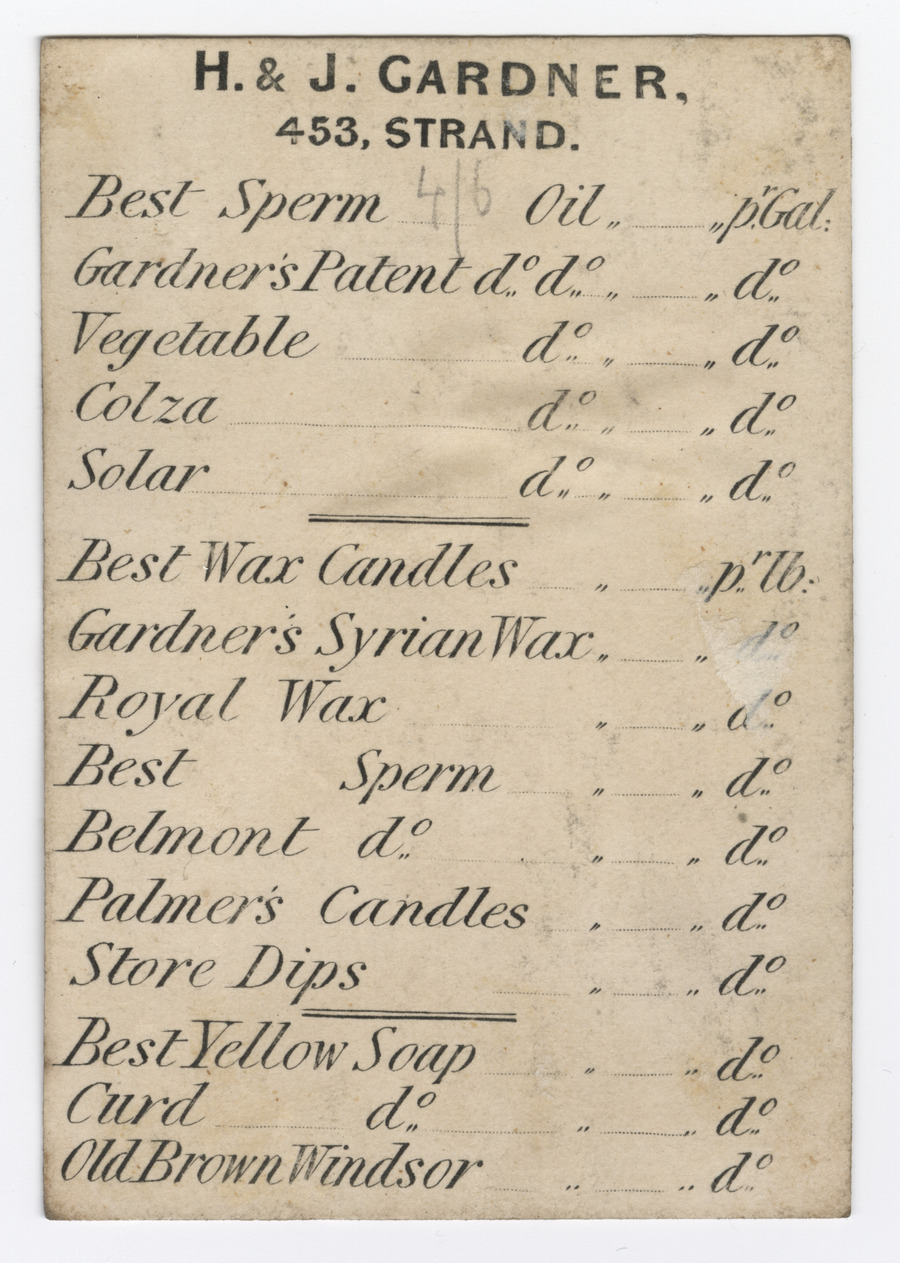 H. & J. GARDNER,
453, STRAND.
Best Sperm 4/6 Oil „ „ pr. Gal:
Gardner's Patent do. do. „ „ do.
Vegetable do. „ „ do.
Colza do. „ „ do.
Solar do. „ „ do.
Best Wax Candles „ „ pr. lb:
Gardner's Syrian Wax „ „ do.
Royal Wax „ „ do.
Best Sperm „ „ do.
Belmont do. „ „ do.
Palmer's Candles „ „ do.
Store Dips „ „ do.
Best Yellow Soap „ „ do.
Curd do. „ „ do.
Old Brown Windsor „ „ do.